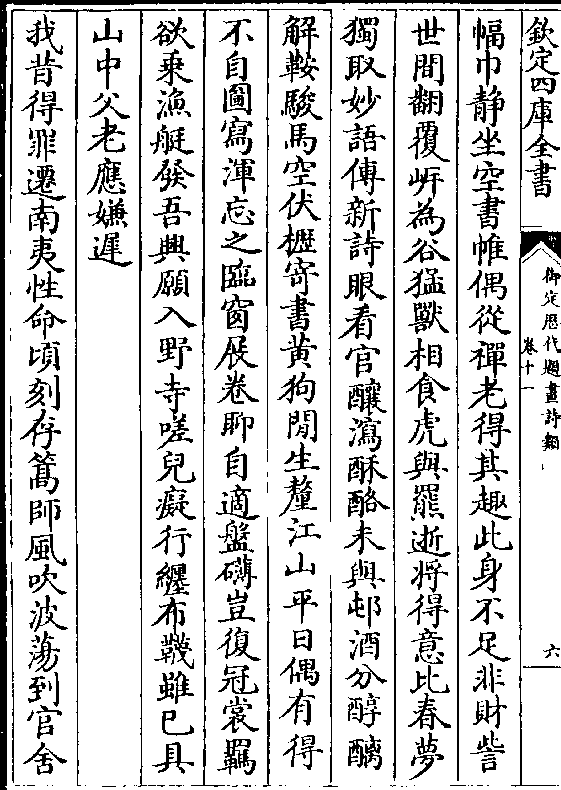 欽定四庫全書
御定歷代題畫詩類
卷十一
六
幅巾靜坐空書帷偶從禪老得其趣此身不足非財訾
世間翻覆岸為谷猛獸相食虎與羆逝將得意比春夢
獨取妙語傳新詩眼看官釀瀉酥酪未與邨酒分醇醨
解鞍駿馬空伏櫪寄書黃狗閒生氂江山平日偶有得
不自圖寫渾忘之臨窗展卷聊自適盤礴豈復冠裳羈
欲乘漁艇發吾興願入野寺嗟兒癡行纏布韈雖已具
山中父老應嫌遲
我昔得罪遷南夷性命頃刻存篙師風吹波蕩到官舍